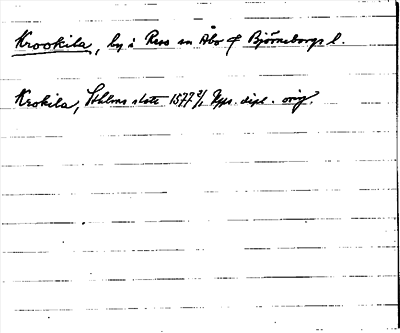 Krookila, by i Reso sn Åbo o Björneborgs l.
Krokila, Sthlms slott 1577 2/1 Upps. dipl. orig.